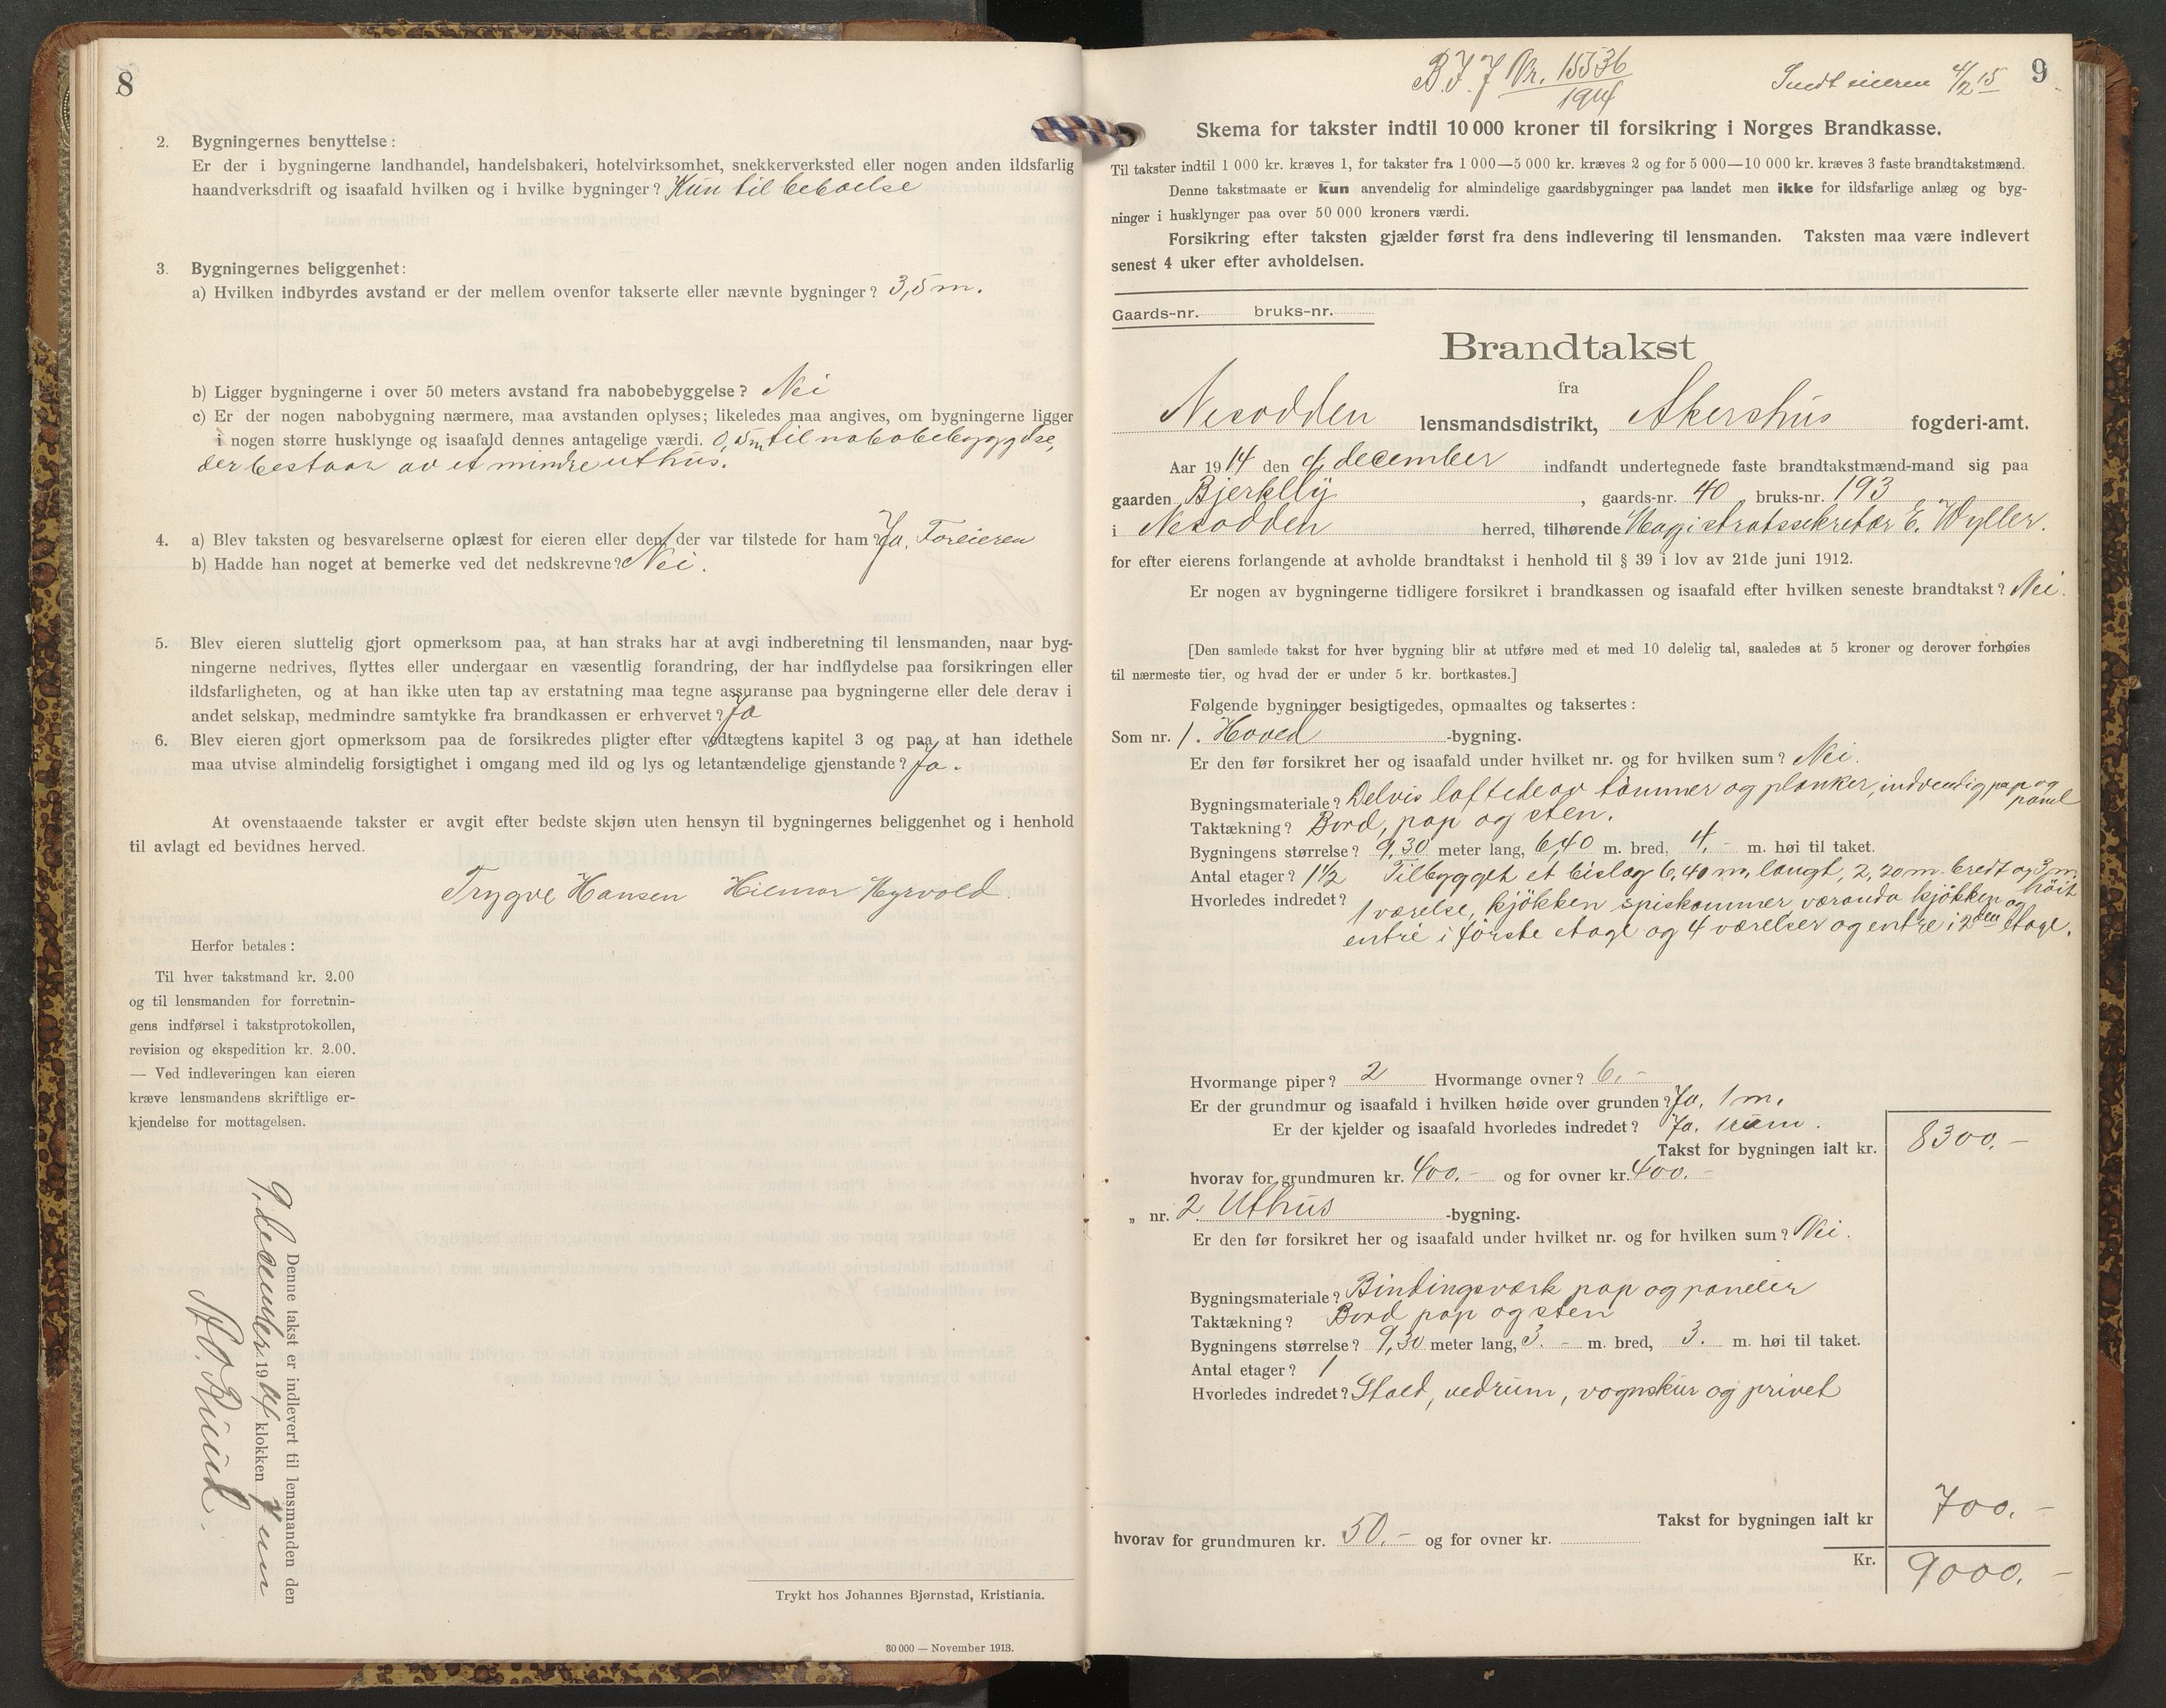 8
2. Bygningernes benyttelse:
Er der i bygningerne landhandel, handelsbakeri, hotelvirksomhet, snekkerverksted eller nogen anden ildsfarlig
haandverksdrift og isaafald hvilken og i hvilke bygninger? Kun til beboelse
3. Bygningernes beliggenhet:
a) Hvilken indbyrdes avstand er der mellem ovenfor takserte eller nævnte bygninger? 3,5 m.
b) Ligger bygningerne i over 50 meters avstand fra nabobebyggelse? Nei
c) Er der nogen nabobygning nærmere, maa avstanden oplyses; likeledes maa angives, om bygningerne ligger
i nogen større husklynge og isaafald dennes antagelige værdi. 0,5 m til nabobebyggelse,
der bestaar av et mindre uthus.
4. a) Blev taksten og besvarelserne oplæst for eieren eller den, der var tilstede for ham? Ja, For eieren
b) Hadde han noget at bemerke ved det nedskrevne? Nei.
5. Blev eieren sluttelig gjort opmerksom paa, at han straks har at avgi indberetning til lensmanden, naar byg-
ningerne nedrives, flyttes eller undergaar en væsentlig forandring, der har indflydelse paa forsikringen eller
ildsfarligheten, og at han ikke uten tap av erstatning maa tegne assuranse paa bygningerne eller dele derav i
andet selskap, medmindre samtykke fra brandkassen er erhvervet? Ja
6. Blev eieren gjort opmerksom paa de forsikredes pligter efter vedtægtens kapitel 3 og paa at han idethele
maa utvise almindelig forsigtighet i omgang med ild og lys og letantændelige gjenstande? Ja.
At ovenstaaende takster er avgit efter bedste skjøn uten hensyn til bygningernes beliggenhet og i henhold
til avlagt ed bevidnes herved.
Trygve Hansen Hilmar Myrvold.
Herfor betales:
Til hver takstmand kr. 2.00
og til lensmanden for forretnin-
gens indførsel i takstprotokollen,
revision og ekspedition kr. 2.00.
— Ved indleveringen kan eieren
kræve lensmandens skriftlige er-
kjendelse for mottagelsen.
Denne takst er indlevert til lensmanden den
9. december 1914 klokken
Trykt hos Johannes Bjørnstad, Kristiania.
30 000 — November 1913.
B.T.J Nr. 15536
1914
Sendt eieren 4/2 15
9
Skema for takster indtil 10 000 kroner til forsikring i Norges Brandkasse.
Til takster indtil 1 000 kr. kræves 1, for takster fra 1 000—5 000 kr. kræves 2 og for 5 000—10 000 kr. kræves 3 faste brandtakstmænd.
Denne takstmaate er kun anvendelig for almindelige gaardsbygninger paa landet men ikke for ildsfarlige anlæg og byg-
ninger i husklynger paa over 50 000 kroners værdi.
Forsikring efter taksten gjælder først fra dens indlevering til lensmanden. Taksten maa være indlevert
senest 4 uker efter avholdelsen.
Gaards-nr. bruks-nr.
Brandtakst
fra
Nesodden lensmandsdistrikt, Akershus fogderi-amt.
Aar 1914 den 9. december indfandt undertegnede faste brandtakstmænd-mand sig paa
gaarden Bjerklÿ, gaards-nr. 40 bruks-nr. 193
i Nesodden herred, tilhørende Magistratssekretær E. Wyller.
for efter eierens forlangende at avholde brandtakst i henhold til § 39 i lov av 21de juni 1912.
Er nogen av bygningerne tidligere forsikret i brandkassen og isaafald efter hvilken seneste brandtakst? Nei.
[Den samlede takst for hver bygning blir at utføre med et med 10 delelig tal, saaledes at 5 kroner og derover forhøies
til nærmeste tier, og hvad der er under 5 kr. bortkastes.]
Følgende bygninger besigtigedes, opmaaltes og taksertes:
Som nr. 1. Hoved -bygning.
Er den før forsikret her og isaafald under hvilket nr. og for hvilken sum? Nei.
Bygningsmateriale? Delvis laftede av tömmer og planker, indvendig pap og
panel
Taktækning? Bord, pap og sten.
Bygningens størrelse? 9,30 meter lang, 6,40 m. bred, 4,- m. høi til taket.
Antal etager? 1½ Tilbygget et bislag 6,40 m. langt, 2,20 m. bredt og 3 m.
höit
Hvorledes indredet? 1 værelse, kjökken spiskammer væranda kjökken og
entré i förste etage og 4 værelser og entre i 2den etage.
Hvormange piper? 2 Hvormange ovner? 6,-
Er der grundmur og isaafald i hvilken høide over grunden? Ja, 1 m.
Er der kjelder og isaafald hvorledes indredet? Ja, 1 rum.
Takst for bygningen ialt kr. 8300.-
hvorav for grundmuren kr. 400.- og for ovner kr. 400.-
„ nr. 2. Uthus -bygning.
Er den før forsikret her og isaafald under hvilket nr. og for hvilken sum? Nei.
Bygningsmateriale? Bindingsværk pap og paneler
Taktækning? Bord pap og sten
Bygningens størrelse? 9,30 meter lang, 3.- m. bred, 3. m. høi til taket.
Antal etager? 1
Hvorledes indredet? Stald, vedrum, vognskur og privet
Takst for bygningen ialt kr 700.-
hvorav for grundmuren kr. 50.- og for ovner kr.
Kr. 9000.-